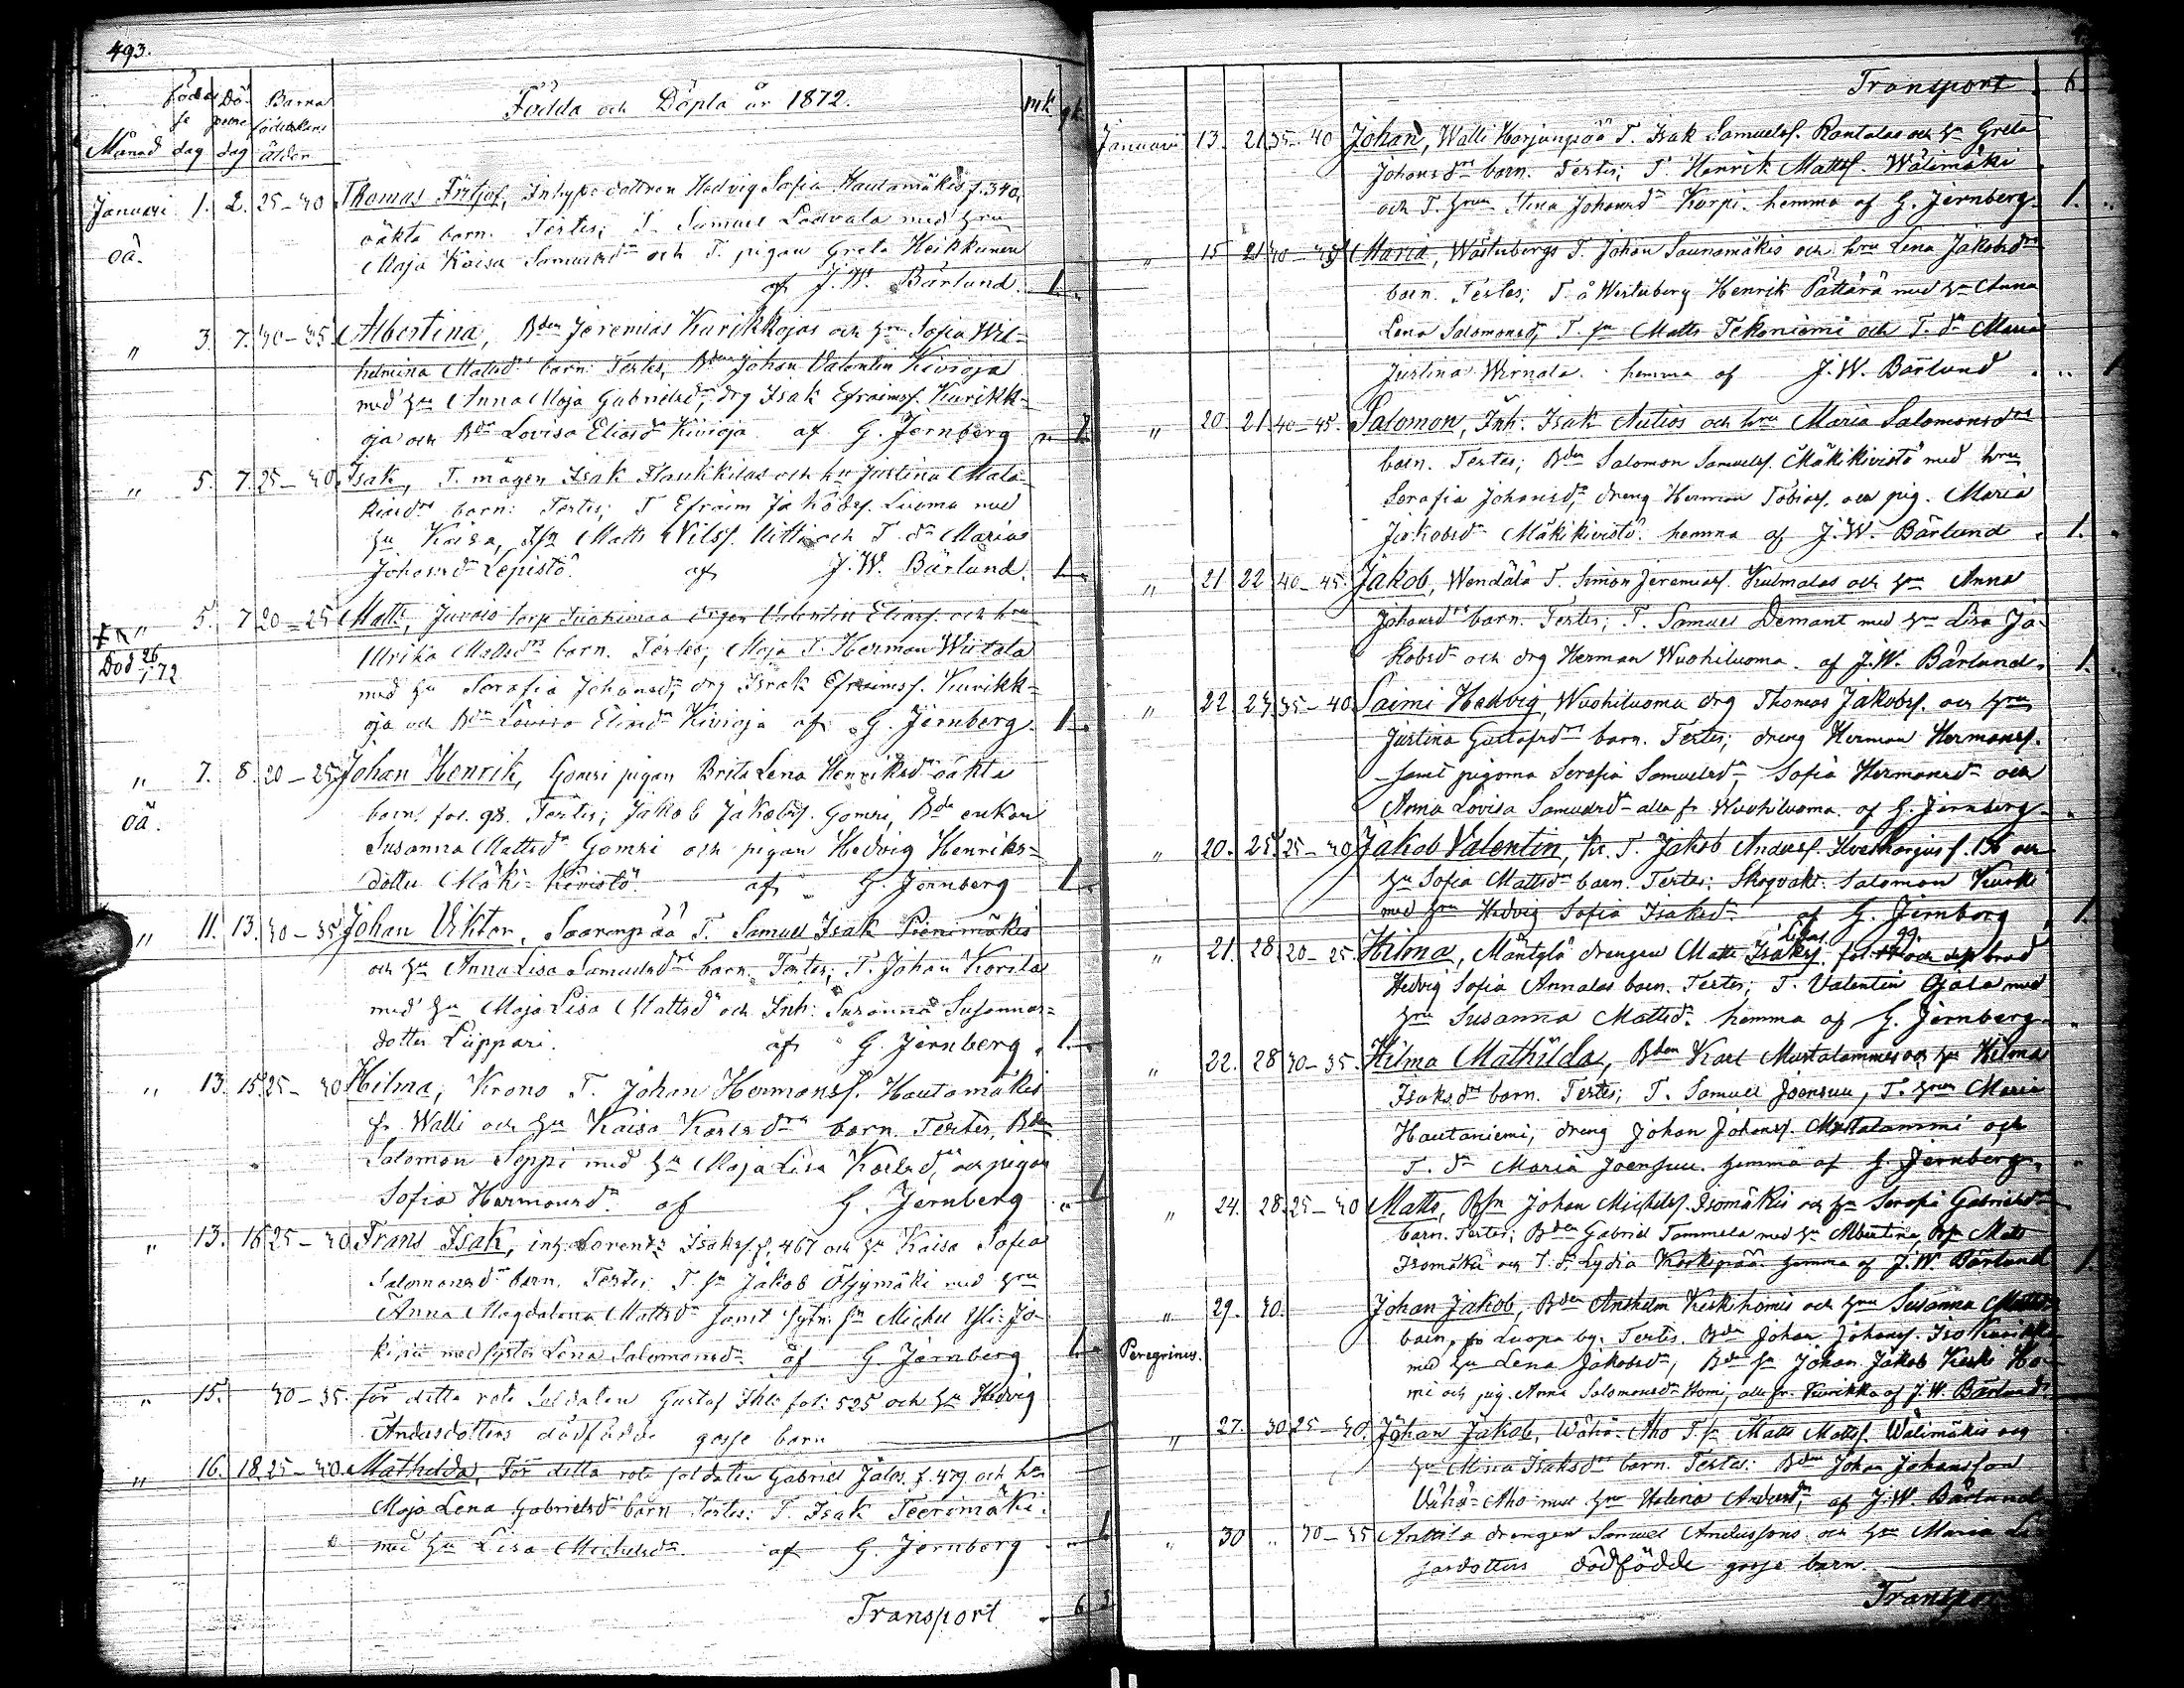 493.
Födel Dö- Barna
se pelse föderskans
Månad dag dag ålder
Födda och Döpta år 1872. mk
Januari 1. 2. 25-30 Thomas Fritjof, Inhysedottren Hedvig Sofia Hautamäkis f. 340,
oä. oäkta barn. Testes; T. Samuel med hru
Maja Kaisa Samuelsdr och T. pigan Greta Heikkinen
af J.W. Bärlund. 1.
" 3. 7. 30-35 Albertina, Bden Jeremias Kurikkojas och hu Sofia Wil-
helmina Mattsdr barn. Testes, Bden Johan Valentin Kivioja
med hu Anna Maja Gabrielsdr, drg Isak Efraimsf. Kurikk-
oja och Bdr Lovisa Eliasdr Kivioja af G. Jernberg 1.
" 5. 7. 25-30 Isak, T. mågen Isak Haukkilas och hu Justina Mala-
kiasdrs barn: Testes; T Efraim Jakobsf. Luoma med
hu Kaisa, Matts Nilsf. och T. dr Maria
Johansdr Lepistö. af J.W. Bärlund. 1.
" 5. 7 20-25 Matts, torp drgen Valentin Eliasf. och hru
Död 26/1 72 Ulrika Mattsdrs barn. Testes; Maja T. Herman Wirtala
med hu Serafia Johansdr, drg Isak Efraimsf. Kurikk-
oja och Bdr Lovisa Eliasdr Kivioja af G. Jernberg. 1.
" 7. 8. 20-25 Johan Henrik, Gomsi pigan Brita Lena Henriksdr oäkta
oä. barn, fol. 98. Testes; Jakob Jakobsf. Gomsi, Bde enkan
Susanna Mattsdr Gomsi och pigan Hedvig Henriks-
dotter Mäki-Kivistö. af G. Jernberg 1.
" 11. 13. 30-35 Johan Viktor, Saarenpää T. Samuel Isak Pienimäkis
och hu Anna Lisa Samuelsdrs barn. Testes; T. Johan Korsila
med hu Maja Lisa Mattsdr och Inh: Susanna Susannas-
dotter Lüppari. af G. Jernberg. 1.
" 13. 15. 25-30 Hilma, Krono T. Johan Hermansf. Hautamäkis
fr Walli och hu Kaisa Karlsdrs barn. Testes, Bden
Salomon Seppi med hu Maja Lisa Karlsdr, och pigan
Sofia Hermansdr. af G. Jernberg 1
" 13. 16 25-30 Frans Isak, inh. Lorentz Isaksf. f. 467 och hu Kaisa Sofia
Salomonsdr barn. Testes: T. sn Jakob Öljymäki med hru
Anna Magdalena Mattsdr samt sn Michel Yli-Jo-
kipii med syster Lena Salomonsdr af G. Jernberg 1
" 15. 30-35. för detta rote Soldaten Gustaf Ihls fol: 525 och hu Hedvig
Andersdotters dödfödde gosse barn
" 16. 18 25-30. Mathilda, För detta rote soldaten Gabriel Jälos. f. 479 och hu
Maja Lena Gabrielsdr barn Testes: T. Isak Teerimäki
med hu Lisa Michelsdr. af G. Jernberg 1
Transport 6
Transport 6
Januari 13. 21 35-40 Johan, Walli Harjunpää T. Isak Samuelsf. Rantalas och hu Greta
Johansdrs barn. Testes; T. Henrik Mattsf. Wälimäki
och T. hrun Stina Johansdr Korpi. hemma af G. Jernberg. 1.
" 15 21 40-45 Maria, Wästerbergs T. Johan Saunamäkis och hru Lena Jakobsdrs
barn. Testes; T. å Westerberg Henrik Pättärä med hu Anna
Lena Salomonsdr, T. sn Matts Tekoniemi och T. dr Maria
Justina Wirnala. hemma af J.W. Bärlund 1
" 20. 21 40-45. Salomon, Inh. Isak Autios och hru Maria Salomonsdrs
barn. Testes; Bden Salomon Samuelsf. Mäkikivistö med hru
Serafia Johansdr, dreng Herman Tobiasf. och pig. Maria
Jakobsdr Mäkikivistö. hemma af J.W. Bärlund. 1.
" 21 22 40-45. Jakob, Wendälä T. Simon Jeremiasf. Kulmalas och hru Anna
Johansdrs barn. Testes; T. Samuel Demant med hru Lisa Ja-
kobsdr och drg Herman Wuohiluoma. af J.W. Bärlund. 1.
" 22 23 35-40 Saimi Hedvig, Wuohiluoma drg Thomas Jakobsf. och hru
Justina Gustafsdrs barn. Testes; dreng Herman Hermansf.
samt pigorna Serafia Samuelsdr, Sofia Hermansdr och
Anna Lovisa Samuelsdr alla fr Wuohiluoma. af G. Jernberg.
" 20. 25. 25-30 Jakob Valentin, Kr. T. Jakob Andersf. f. 136 och
hu Sofia Mattsdr barn. Testes: Skogvakt. Salomon Kurki
med hru Hedvig Sofia Isaksdr af G. Jernberg 1.
" 21. 28 20-25. Hilma, Mäntylä drengen Matts Isaksf. fol. 99
Hedvig Sofia Annalas barn. Testes; T. Valentin Ojala med
hru Susanna Mattsdr. hemma af G. Jernberg.
" 22. 28 30-35. Hilma Mathilda, Bden Karl Mustalammis och hu Hilma
Isaksdrs barn. Testes; T. Samuel Joensuu, T. hrun Maria
Hautaniemi, dreng Johan Johansf. Mustalammi och
T. dr Maria Joensuu. hemma af G. Jernberg.
" 24. 28. 25-30 Matts, Bsn Johan Michelsf. Isomäkis och hu Serafia Gabrielsdrs
barn. Testes; Bden Gabriel Tammela med hu Albertina, Bsn Matts
Isomäki och T. dr Lydia Koskipää hemma af J.W. Bärlund 1.
" 29. 30. Johan Jakob, Bden Anshelm Keskihomis och hru Susanna Mattsdrs
Peregrines. barn, fr Luopa by. Testes. Bden Johan Johansf. Iso Kurikka
med hu Lena Jakobsdr, Bde sn Johan Jakob Keski Ho-
mi och pig. Anna Salomonsdr Homi, alla fr. Kurikka af J.W. Bärlund.
" 27. 30 25-30. Johan Jakob, Wähä-Aho T. sn Matts Mattsf. Wälimäkis och
hu Mina Isaksdrs barn. Testes: Bden Johan Johansson
Wähä-Aho med hru Helena Andersdr, af J.W. Bärlund
" 30 " 30-35 Anttila drengen Samuel Anderssons och hru Maria Li-
sasdotters dödfödde gosse barn.
Transport